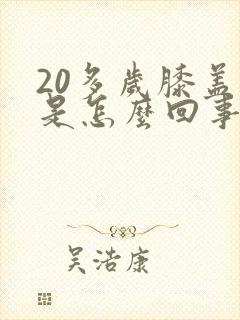 20多歲膝盖
是怎麼回事
吴浩康